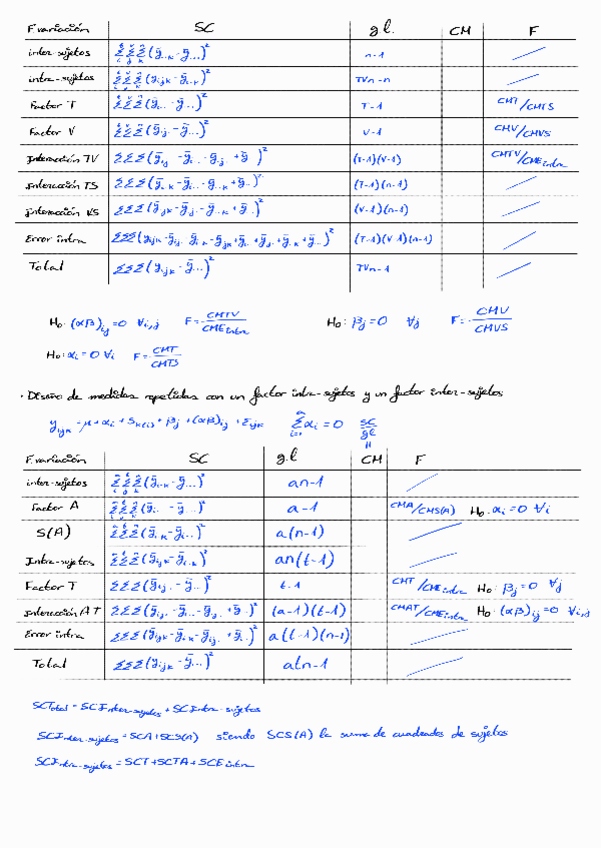 F variación SC g.l. CM F
inter-sujetos ΣΣΣ(ȳ..k - ȳ...)² n-1
intra-sujetos ΣΣΣ(yijk - ȳ..k)² TVn-n
Factor T ΣΣΣ(ȳi.. - ȳ...)² T-1 CMT/CMTS
Factor V ΣΣΣ(ȳ.j. - ȳ...)² V-1 CMV/CMVS
Interacción TV ΣΣΣ(ȳij. - ȳi.. - ȳ.j. + ȳ...)² (T-1)(V-1) CMTV/CMEintra
Interacción TS ΣΣΣ(ȳi.k - ȳi.. - ȳ..k + ȳ...)² (T-1)(n-1)
Interacción VS ΣΣΣ(ȳ.jk - ȳ.j. - ȳ..k + ȳ...)² (V-1)(n-1)
Error intra ΣΣΣ(yijk - ȳij. - ȳi.k - ȳ.jk + ȳi.. + ȳ.j. + ȳ..k + ȳ...)² (T-1)(V-1)(n-1)
Total ΣΣΣ(yijk - ȳ...)² TVn-1
H₀: (αβ)ij = 0 ∀i,j F = CMTV/CMEintra H₀: βj = 0 ∀j F = CMV/CMVS
H₀: αi = 0 ∀i F = CMT/CMTS
· Diseño de medidas repetidas con un factor intra-sujetos y un factor inter-sujetos
yijk = μ + αi + Sk(i) + βj + (αβ)ij + εijk Σαi = 0 SC/gl
F. variación SC g.l CM F
inter-sujetos ΣΣΣ(ȳi.k - ȳ...)² an-1
Factor A ΣΣΣ(ȳi.. - ȳ...)² a-1 CMA/CMS(A) H₀: αi = 0 ∀i
S(A) ΣΣΣ(ȳi.k - ȳi..)² a(n-1)
Intra-sujetos ΣΣΣ(yijk - ȳi.k)² an(t-1)
Factor T ΣΣΣ(ȳ.j. - ȳ...)² t-1 CMT/CMEintra H₀: βj = 0 ∀j
Interacción AT ΣΣΣ(ȳij. - ȳi.. - ȳ.j. + ȳ...)² (a-1)(t-1) CMAT/CMEintra H₀: (αβ)ij = 0 ∀i,j
Error intra ΣΣΣ(yijk - ȳi.k - ȳij. + ȳi..)² a(t-1)(n-1)
Total ΣΣΣ(yijk - ȳ...)² atn-1
SCTotal = SCInter-sujetos + SCIntra-sujetos
SCInter-sujetos = SCA + SCS(A) siendo SCS(A) la suma de cuadrados de sujetos
SCIntra-sujetos = SCT + SCTA + SCEintra